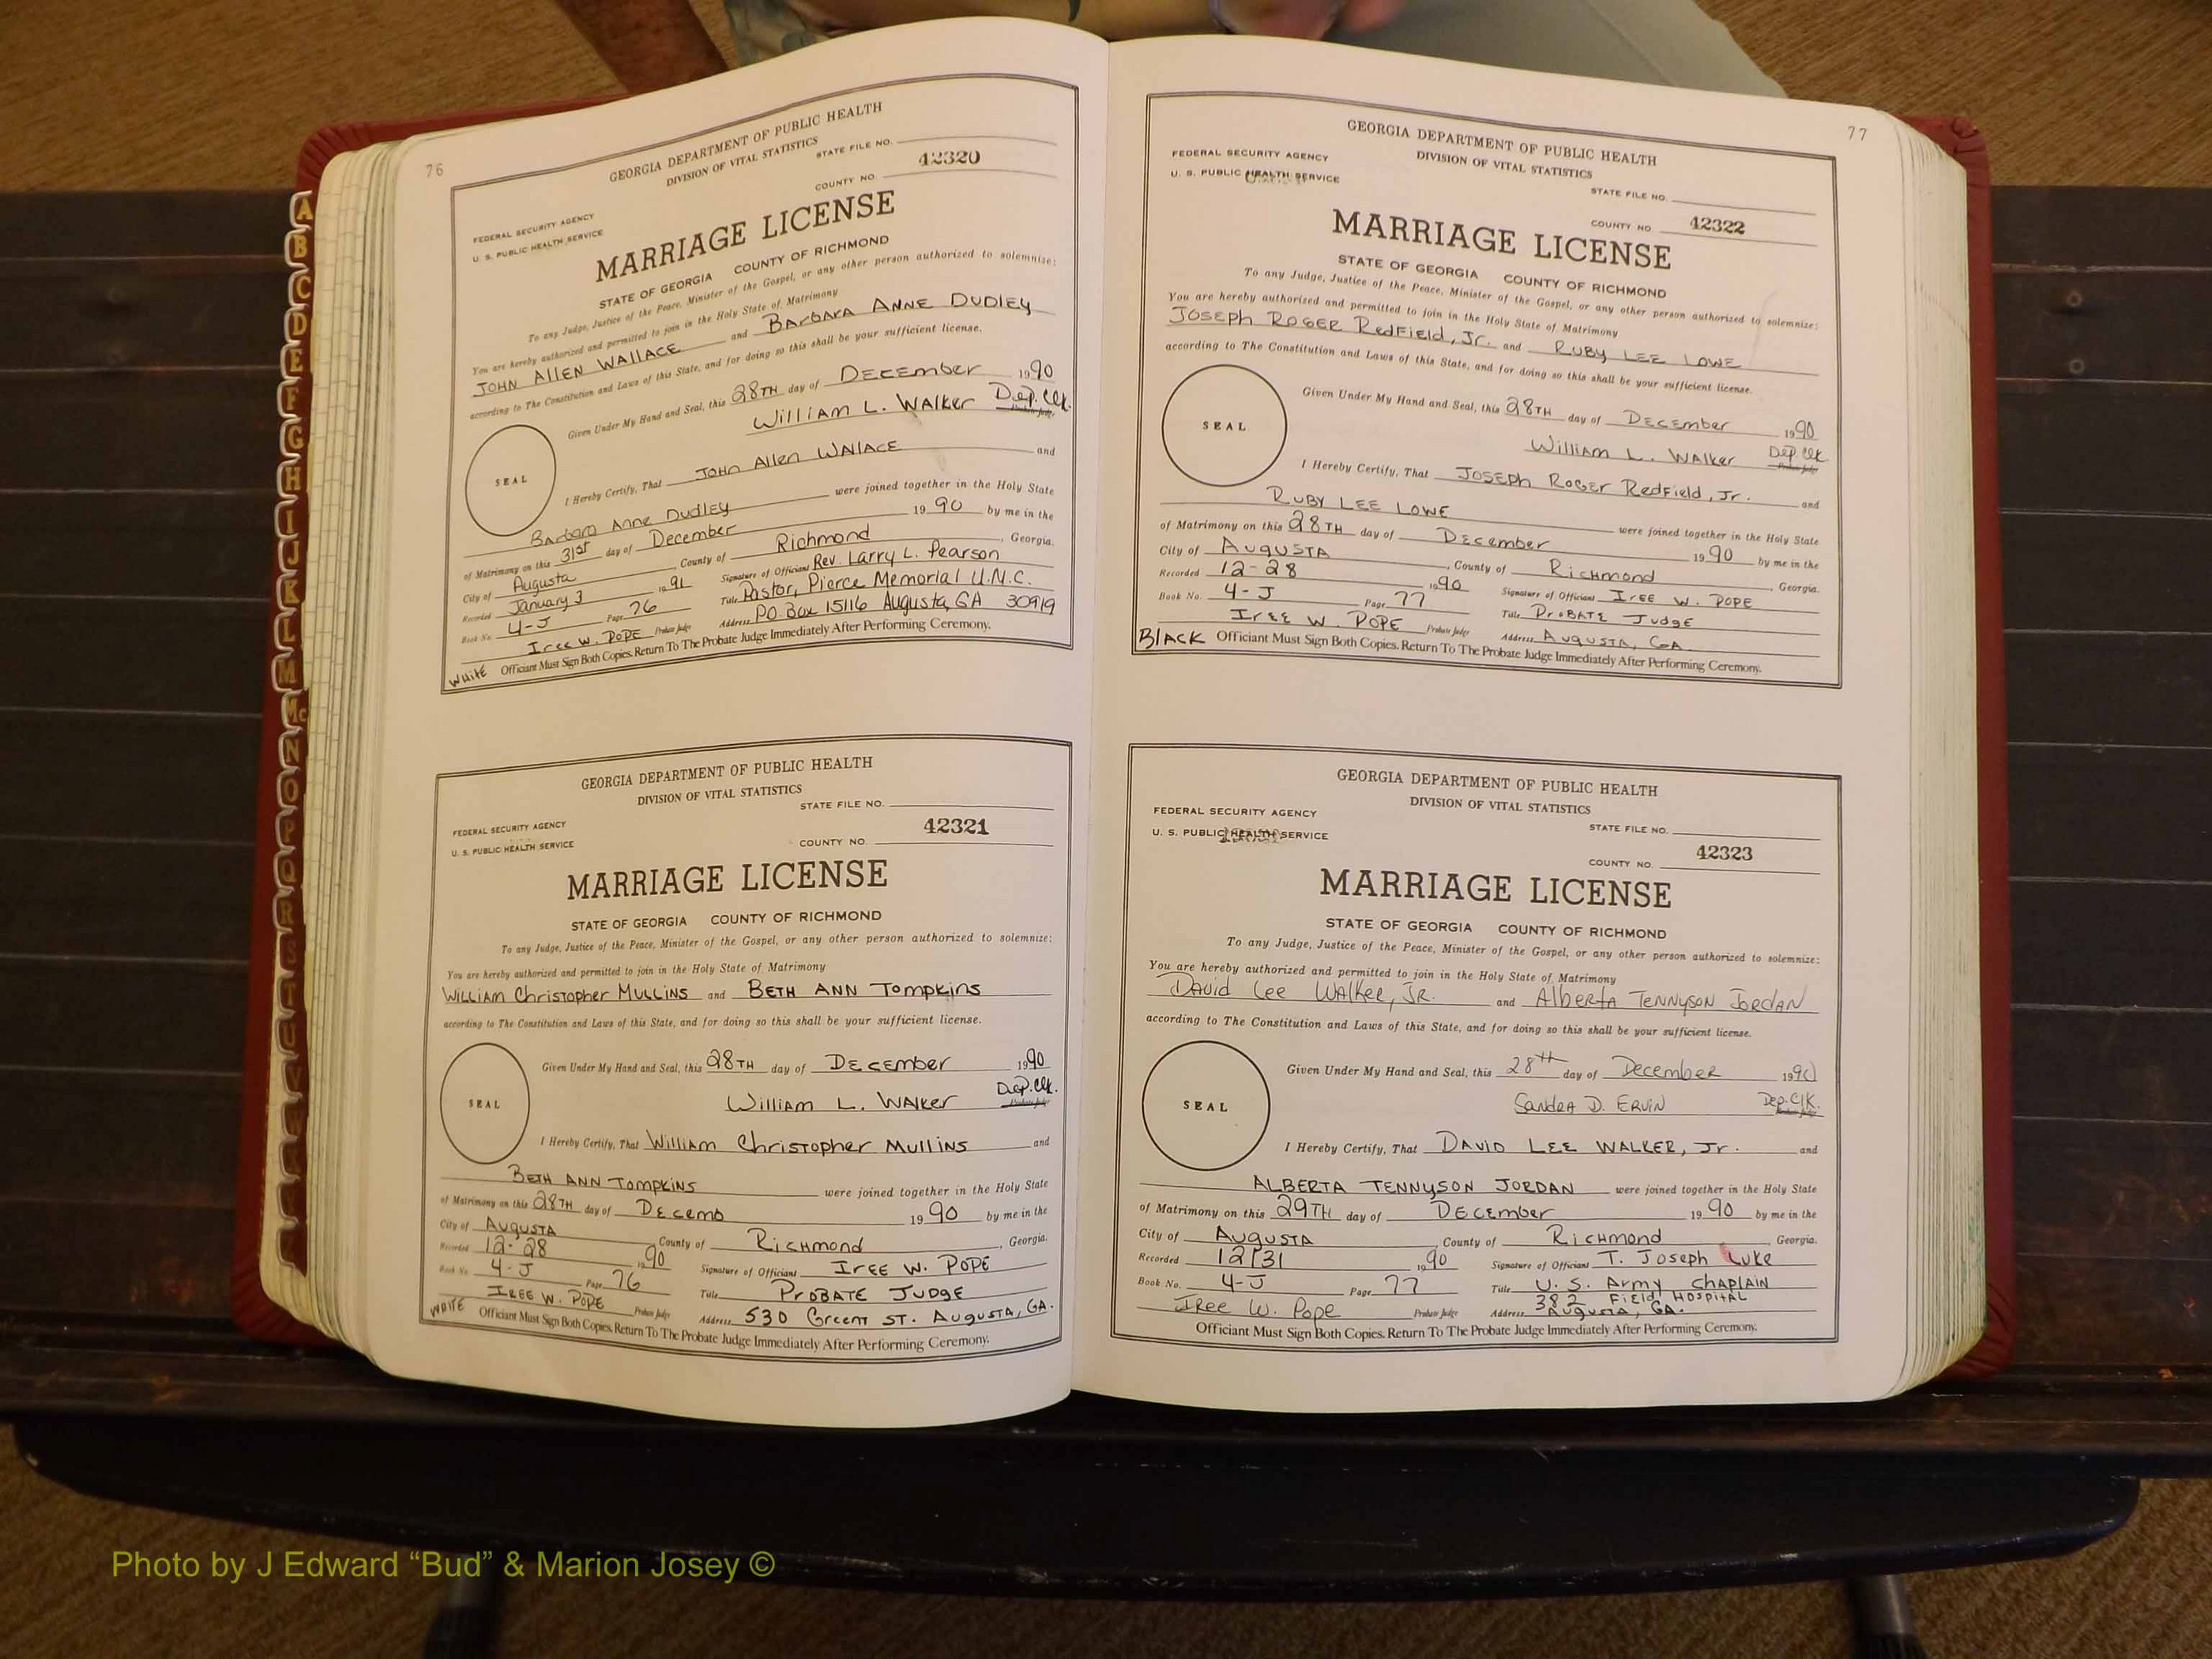 76
GEORGIA DEPARTMENT OF PUBLIC HEALTH
DIVISION OF VITAL STATISTICS
STATE FILE NO.
42320
COUNTY NO.
FEDERAL SECURITY AGENCY
U. S. PUBLIC HEALTH SERVICE
MARRIAGE LICENSE
STATE OF GEORGIA COUNTY OF RICHMOND
To any Judge, Justice of the Peace, Minister of the Gospel, or any other person authorized to solemnize:
You are hereby authorized and permitted to join in the Holy State of Matrimony
JOHN ALLEN WALLACE and BARBARA ANNE DUDLEY
according to The Constitution and Laws of this State, and for doing so this shall be your sufficient license.
Given Under My Hand and Seal, this 28TH day of DECEMBER 1990
William L. Walker Dep. Clk. Probate Judge
SEAL
I Hereby Certify, That JOHN Allen WALLACE and
Barbara Anne Dudley were joined together in the Holy State
of Matrimony on this 31st day of December 1990 by me in the
City of Augusta, County of Richmond, Georgia.
Recorded January 3 1991 Signature of Officiant Rev. Larry L. Pearson
Book No. 4-J Page 76 Title Pastor, Pierce Memorial U.M.C.
Iree W. POPE Probate Judge Address PO Box 15116 Augusta, GA 30919
WHITE Officiant Must Sign Both Copies. Return To The Probate Judge Immediately After Performing Ceremony.
GEORGIA DEPARTMENT OF PUBLIC HEALTH
DIVISION OF VITAL STATISTICS
STATE FILE NO.
FEDERAL SECURITY AGENCY
42321
U. S. PUBLIC HEALTH SERVICE
COUNTY NO.
MARRIAGE LICENSE
STATE OF GEORGIA COUNTY OF RICHMOND
To any Judge, Justice of the Peace, Minister of the Gospel, or any other person authorized to solemnize:
You are hereby authorized and permitted to join in the Holy State of Matrimony
WILLIAM Christopher MULLINS and BETH ANN Tompkins
according to The Constitution and Laws of this State, and for doing so this shall be your sufficient license.
Given Under My Hand and Seal, this 28TH day of DECEMBER 1990
William L. Walker Dep. Clk. Probate Judge
SEAL
I Hereby Certify, That William Christopher Mullins and
BETH ANN Tompkins were joined together in the Holy State
of Matrimony on this 28TH day of Decemb 1990 by me in the
City of AUGUSTA, County of RICHMOND, Georgia.
Recorded 12-28 1990 Signature of Officiant IREE W. POPE
Book No. 4-J Page 76 Title PROBATE JUDGE
IREE W. POPE Probate Judge Address 530 Greent ST. AUGUSTA, GA.
WHITE Officiant Must Sign Both Copies. Return To The Probate Judge Immediately After Performing Ceremony.
77
GEORGIA DEPARTMENT OF PUBLIC HEALTH
DIVISION OF VITAL STATISTICS
FEDERAL SECURITY AGENCY
U. S. PUBLIC HEALTH SERVICE
STATE FILE NO.
COUNTY NO. 42322
MARRIAGE LICENSE
STATE OF GEORGIA COUNTY OF RICHMOND
To any Judge, Justice of the Peace, Minister of the Gospel, or any other person authorized to solemnize:
You are hereby authorized and permitted to join in the Holy State of Matrimony
JOSEPH ROGER REDFIELD, Jr. and RUBY LEE LOWE
according to The Constitution and Laws of this State, and for doing so this shall be your sufficient license.
Given Under My Hand and Seal, this 28TH day of DECEMBER 1990
William L. Walker Dep. Clk. Probate Judge
SEAL
I Hereby Certify, That JOSEPH ROGER REDFIELD, Jr. and
RUBY LEE LOWE were joined together in the Holy State
of Matrimony on this 28TH day of DECEMBER 1990 by me in the
City of AUGUSTA, County of RICHMOND, Georgia.
Recorded 12-28 1990 Signature of Officiant IREE W. POPE
Book No. 4-J Page 77 Title PROBATE JUDGE
IREE W. POPE Probate Judge Address AUGUSTA, GA.
BLACK Officiant Must Sign Both Copies. Return To The Probate Judge Immediately After Performing Ceremony.
GEORGIA DEPARTMENT OF PUBLIC HEALTH
DIVISION OF VITAL STATISTICS
FEDERAL SECURITY AGENCY
U. S. PUBLIC HEALTH SERVICE
STATE FILE NO.
COUNTY NO. 42323
MARRIAGE LICENSE
STATE OF GEORGIA COUNTY OF RICHMOND
To any Judge, Justice of the Peace, Minister of the Gospel, or any other person authorized to solemnize:
You are hereby authorized and permitted to join in the Holy State of Matrimony
David Lee Walker, JR. and Alberta TENNYSON JORDAN
according to The Constitution and Laws of this State, and for doing so this shall be your sufficient license.
Given Under My Hand and Seal, this 28th day of December 1990
Sandra D. Ervin Dep. Clk. Probate Judge
SEAL
I Hereby Certify, That DAVID LEE WALKER, Jr. and
ALBERTA TENNYSON JORDAN were joined together in the Holy State
of Matrimony on this 29TH day of DECEMBER 1990 by me in the
City of AUGUSTA, County of RICHMOND, Georgia.
Recorded 12/31 1990 Signature of Officiant T. Joseph Luke
Book No. 4-J Page 77 Title U. S. Army CHAPLAIN
382 FIELD HOSPITAL
IREE W. Pope Probate Judge Address AUGUSTA, GA.
Officiant Must Sign Both Copies. Return To The Probate Judge Immediately After Performing Ceremony.
A
B
C
D
E
F
G
H
I
J
K
L
M
Mc
N
O
P
Q
R
S
T
U
V
Photo by J Edward “Bud” & Marion Josey ©